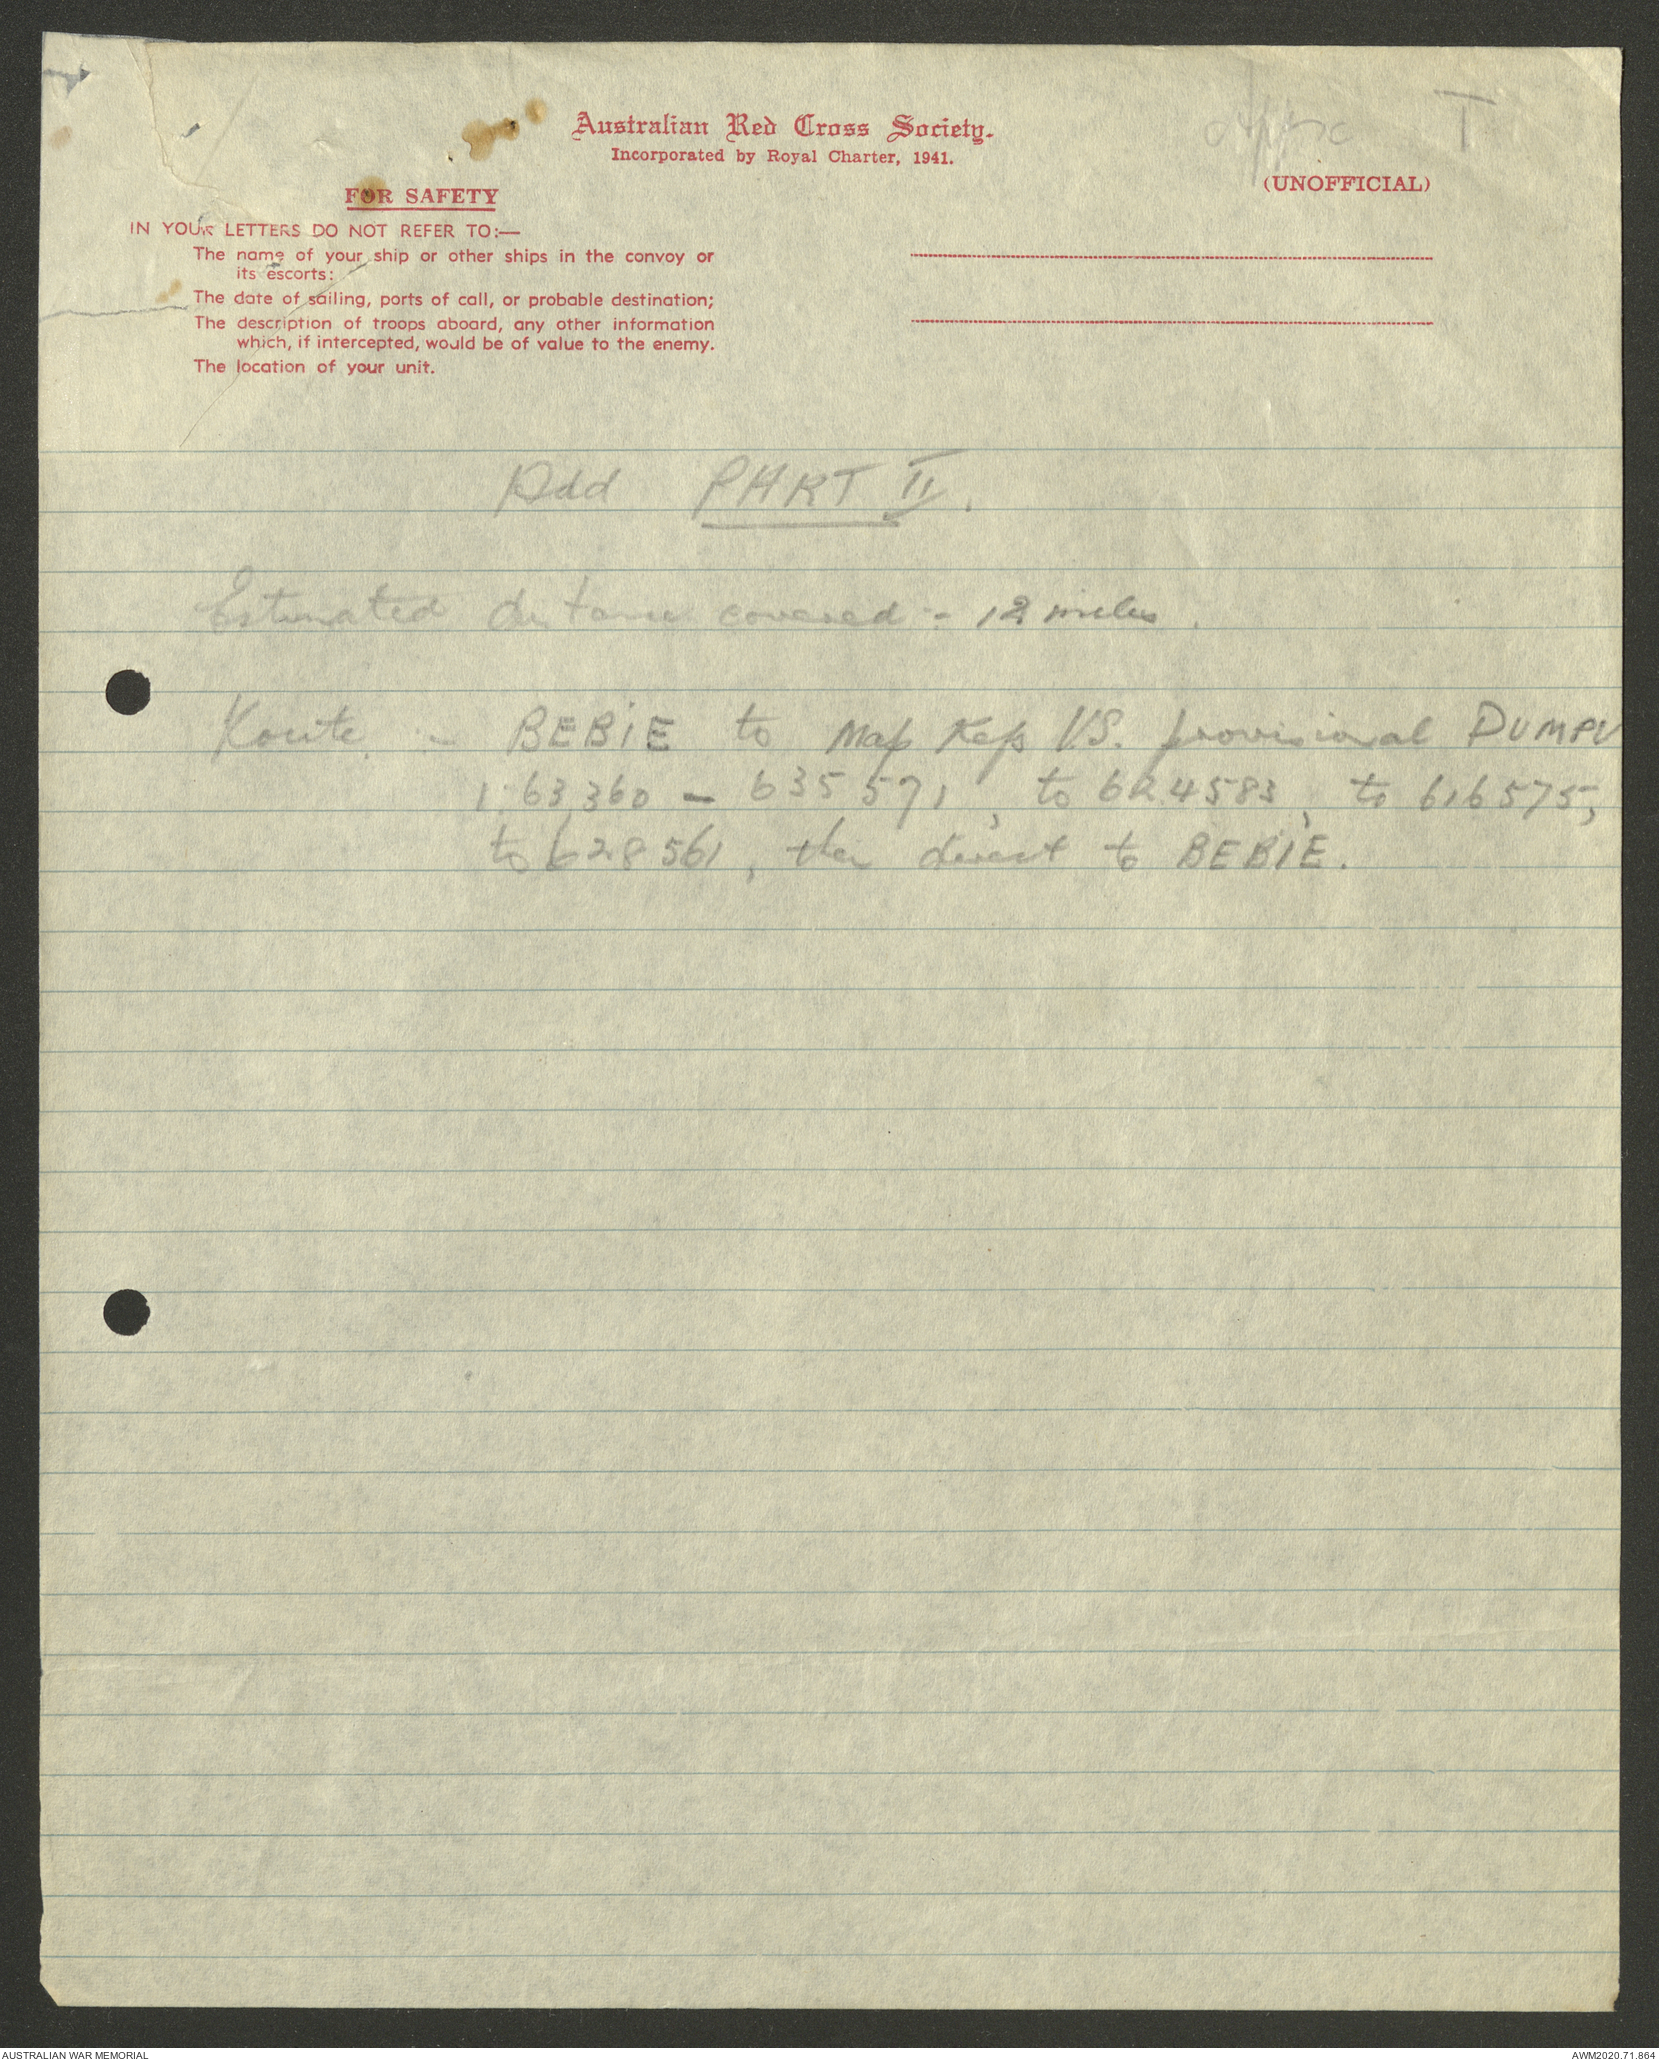 Appx I
Australian Red Cross Society.
Incorporated by Royal Charter, 1941.
(UNOFFICIAL)
FOR SAFETY
IN YOUR LETTERS DO NOT REFER TO:—
The name of your ship or other ships in the convoy or
its escorts:
The date of sailing, ports of call, or probable destination;
The description of troops aboard, any other information
which, if intercepted, would be of value to the enemy.
The location of your unit.
Add PART II.
Estimated distance covered :- 12 miles.
Route :- BEBIE to Map Refs V.S. provisional DUMPU
1:63360 - 635571, to 624583, to 616575,
to 628561, then direct to BEBIE.
AUSTRALIAN WAR MEMORIAL
AWM2020.71.864